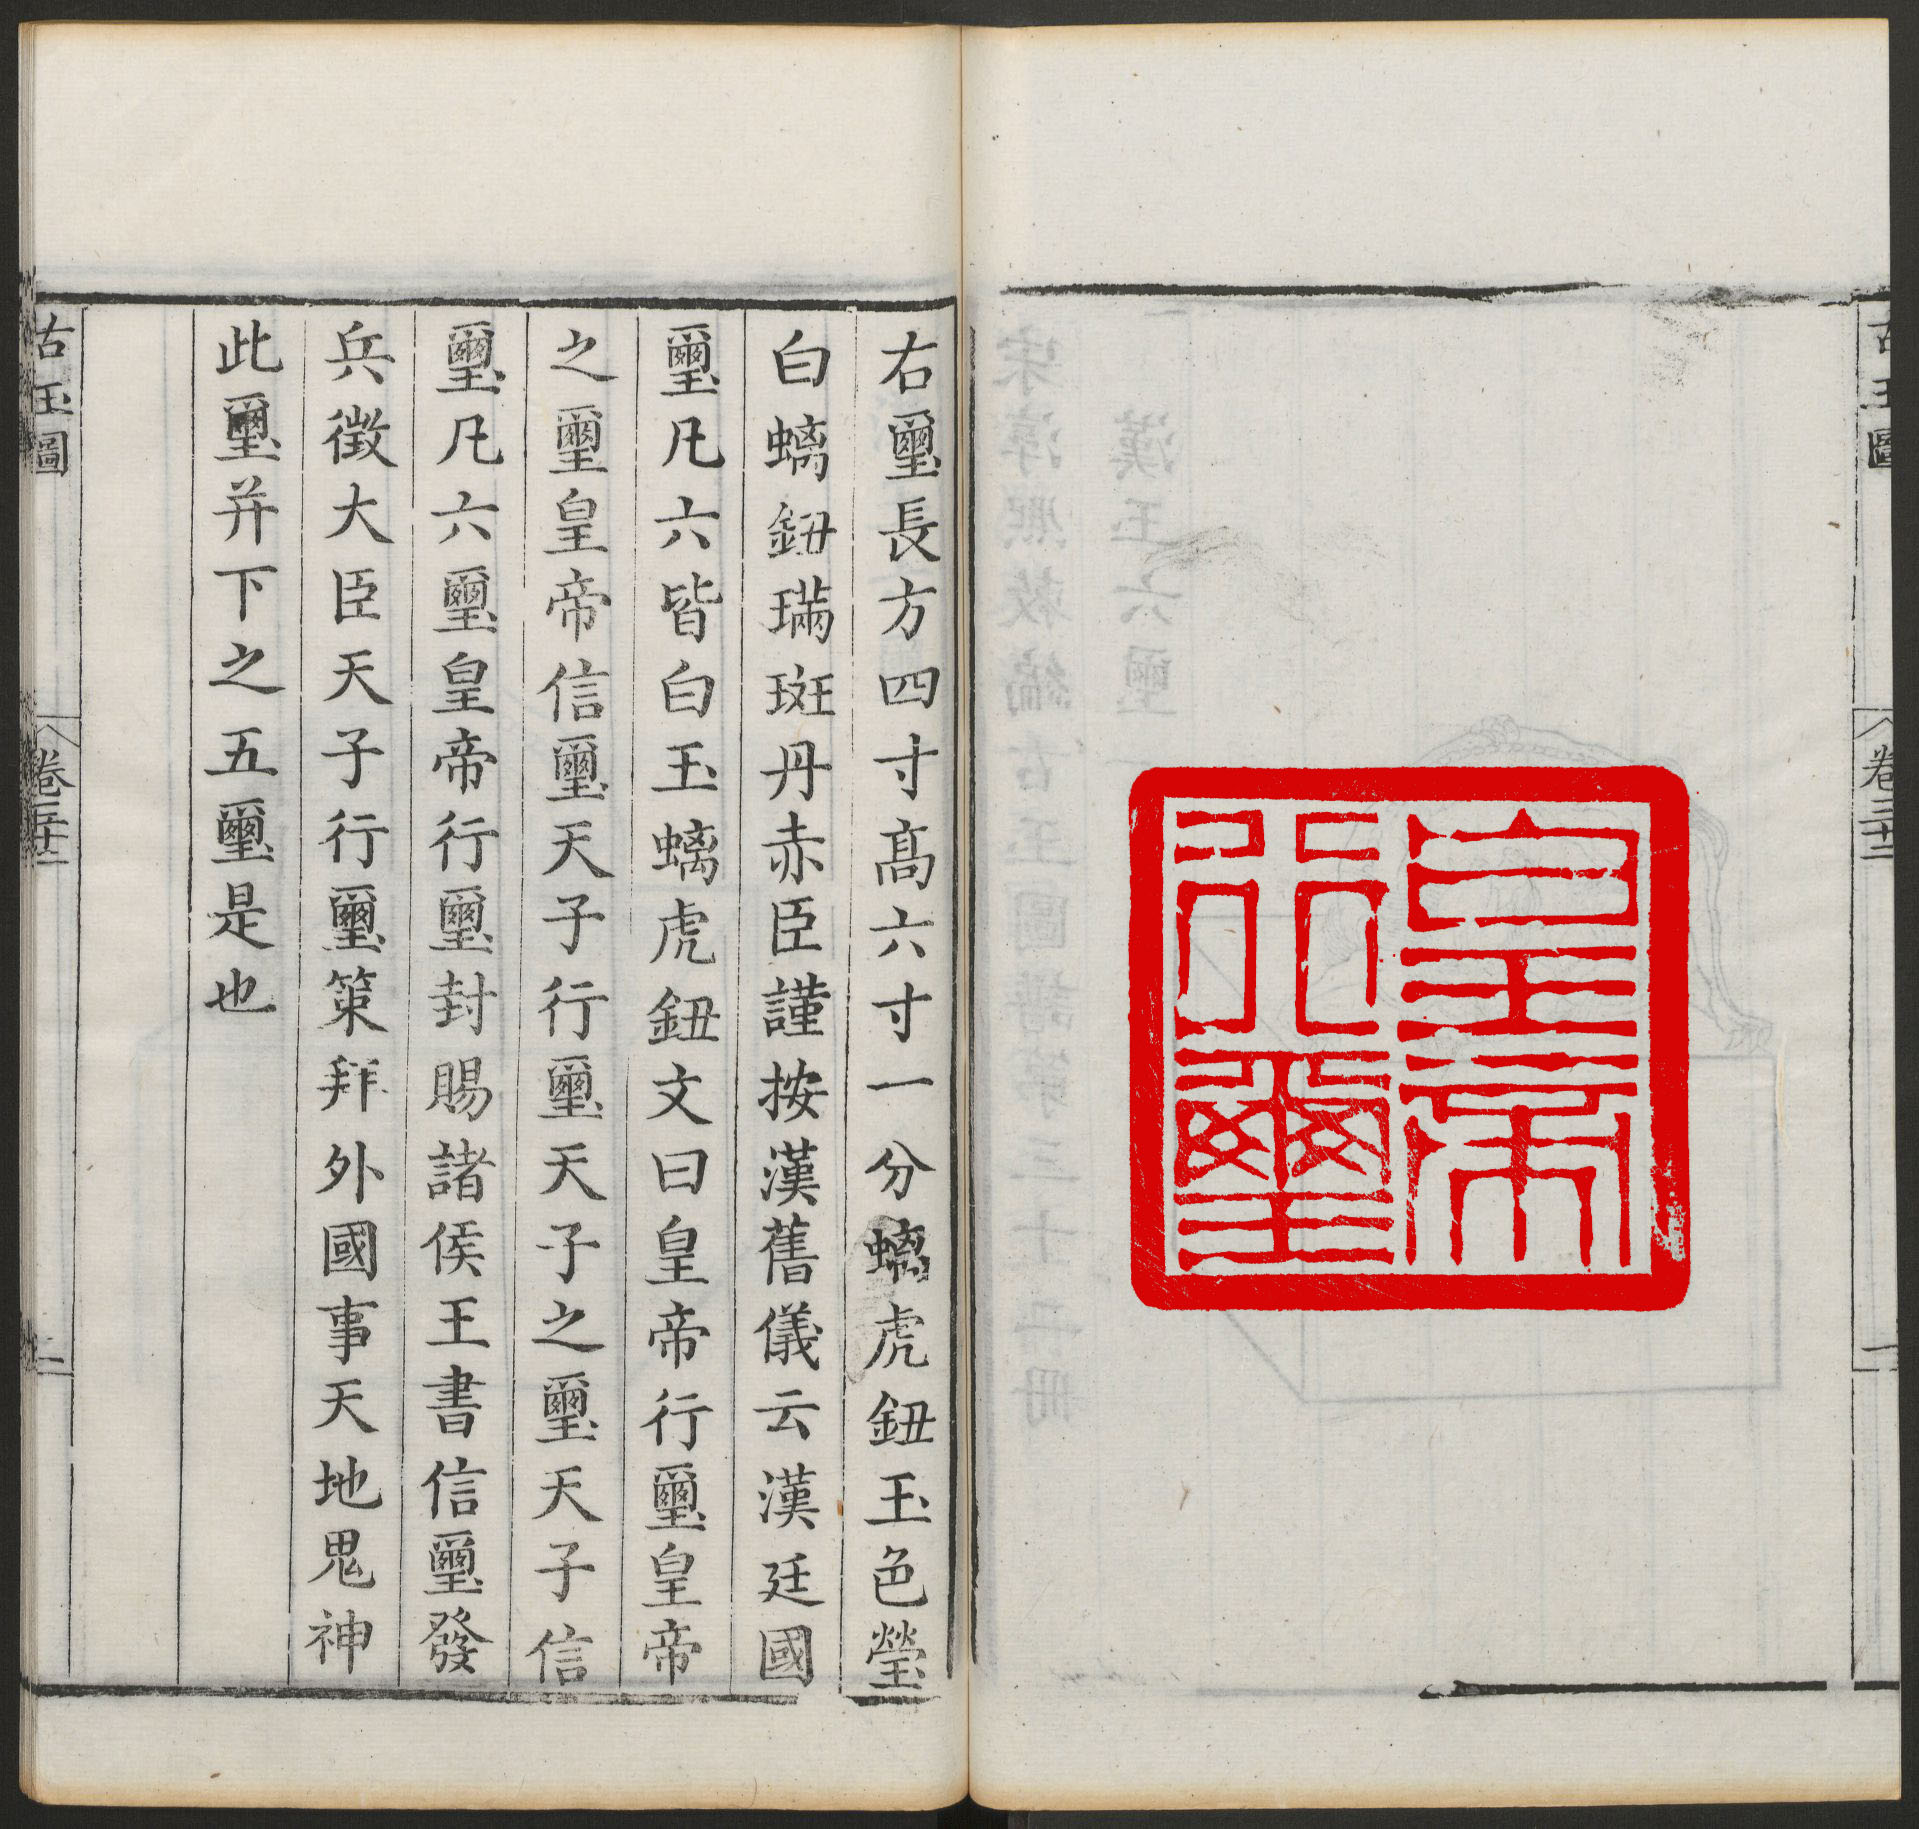 古玉圖
卷三十二
一
皇帝
行璽
右璽長方四寸高六寸一分螭虎鈕玉色瑩
白螭鈕璊斑丹赤臣謹按漢舊儀云漢廷國
璽凡六皆白玉螭虎鈕文曰皇帝行璽皇帝
之璽皇帝信璽天子行璽天子之璽天子信
璽凡六璽皇帝行璽封賜諸侯王書信璽發
兵徵大臣天子行璽策拜外國事天地鬼神
此璽并下之五璽是也
古玉圖
卷三十二
二